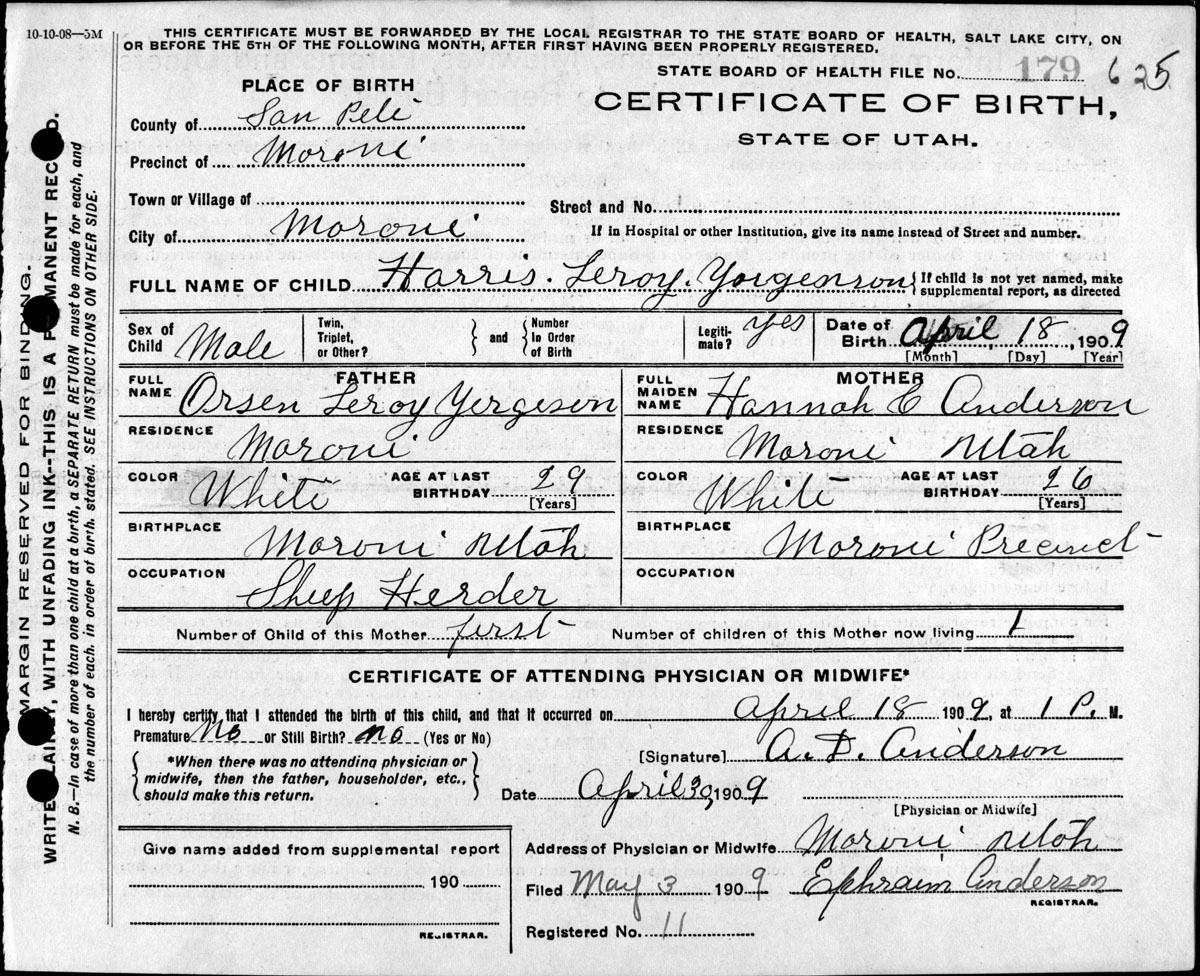 10-10-08—5M
THIS CERTIFICATE MUST BE FORWARDED BY THE LOCAL REGISTRAR TO THE STATE BOARD OF HEALTH, SALT LAKE CITY, ON
OR BEFORE THE 5TH OF THE FOLLOWING MONTH, AFTER FIRST HAVING BEEN PROPERLY REGISTERED.
STATE BOARD OF HEALTH FILE No. 179 625
PLACE OF BIRTH
CERTIFICATE OF BIRTH,
STATE OF UTAH.
County of San Pete
Precinct of Moroni
Town or Village of
Street and No.
City of Moroni
If in Hospital or other Institution, give its name instead of Street and number.
FULL NAME OF CHILD Harris. Leroy. Yorgenson { If child is not yet named, make
supplemental report, as directed
Sex of
Child Male
Twin,
Triplet,
or Other?
} and {
Number
In Order
of Birth
Legiti-
mate? yes
Date of
Birth April 18, 1909
[Month] [Day] [Year]
FATHER
FULL
NAME Orsen Leroy Yergeson
RESIDENCE Moroni
COLOR White AGE AT LAST
BIRTHDAY 29
[Years]
BIRTHPLACE Moroni Utah
OCCUPATION Sheep Herder
MOTHER
FULL
MAIDEN
NAME Hannah E Anderson
RESIDENCE Moroni Utah
COLOR White AGE AT LAST
BIRTHDAY 26
[Years]
BIRTHPLACE Moroni Precinct
OCCUPATION
Number of Child of this Mother first Number of children of this Mother now living 1
CERTIFICATE OF ATTENDING PHYSICIAN OR MIDWIFE*
I hereby certify that I attended the birth of this child, and that it occurred on April 18 1909, at 1 P. M.
Premature No or Still Birth? no (Yes or No)
*When there was no attending physician or
midwife, then the father, householder, etc.,
should make this return.
[Signature] A. D. Anderson
Date April 30, 1909
[Physician or Midwife]
Address of Physician or Midwife Moroni Utah
Filed May 3 1909 Ephraim Anderson
REGISTRAR.
Registered No. 11
Give name added from supplemental report
190
REGISTRAR.
MARGIN RESERVED FOR BINDING.
WRITE LAINLY, WITH UNFADING INK--THIS IS A P MANENT REC D.
N. B.—In case of more than one child at a birth, a SEPARATE RETURN must be made for each, and
the number of each, in order of birth, stated. SEE INSTRUCTIONS ON OTHER SIDE.